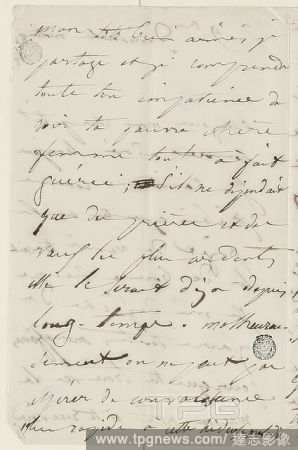 mon bien aimé, je
partage et je comprends
toute ton impatience de
voir ta pauvre chère
femme tout à fait
guerie; S'il ne dépendait
que de prières et de
vœux les plus ardents
elle le serait déjà depuis
long-temps. malheureu-
sement on ne peut pas
espérer de convalescence
plus rapide à cette
TPG
www.tpgnews.com / 達志影像